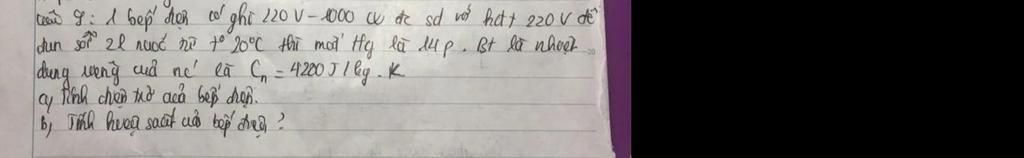 câu 8: 1 bếp điện có ghi 220V-1000W đc sd với hđt 220V để
đun sôi 2l nước từ t° 20°C thì mất Hg là 14p. Bt là nhiệt
dung riêng của nc là Cn = 4200J/kg.K
a, Tính điện trở của bếp điện.
b, Tính hiệu suất của bếp điện?